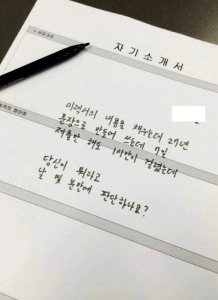 자 기 소 개 서
이력서의 내용을 채우는데 27년
문장으로 만들어 쓰는데 7일
제출만 해도 1시간이 걸렸는데
당신이 뭐라고
날 몇 분안에 판단하나요?